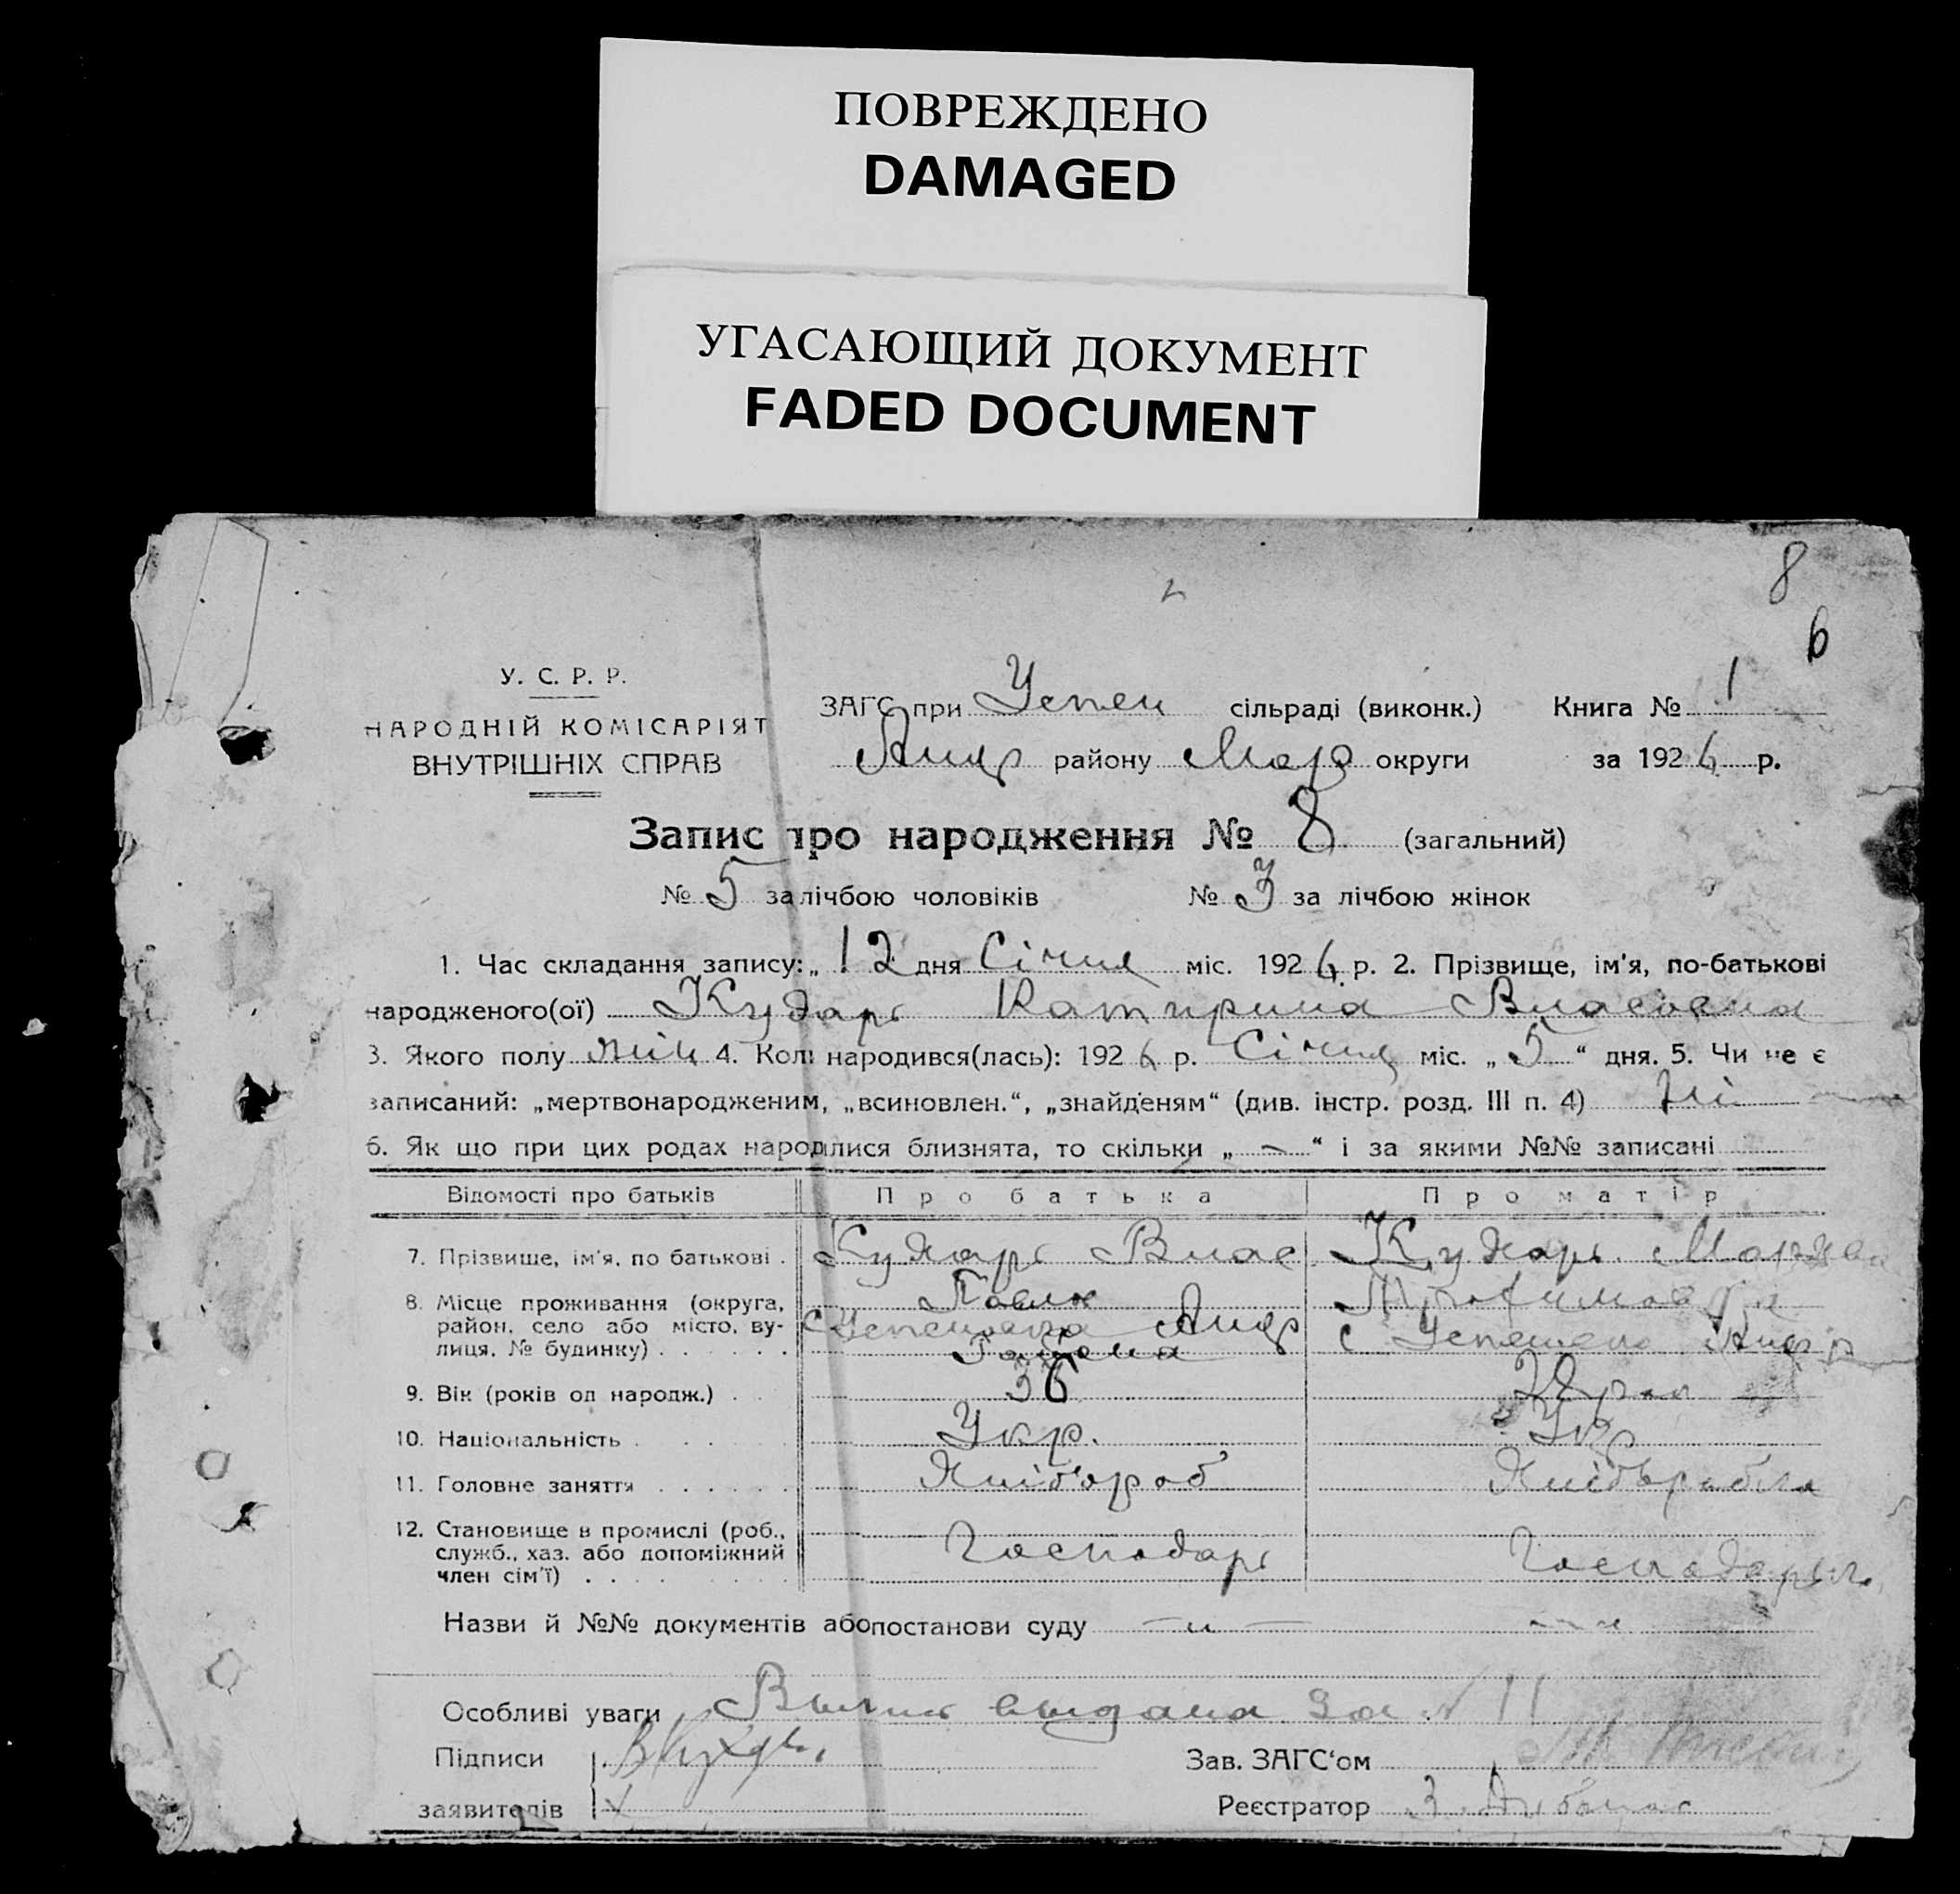 ПОВРЕЖДЕНО
DAMAGED
УГАСАЮЩИЙ ДОКУМЕНТ
FADED DOCUMENT
8
6
У. С. Р. Р.
НАРОДНІЙ КОМІСАРІЯТ
ВНУТРІШНІХ СПРАВ
ЗАГС при Успен сільраді (виконк.) Книга № 1
району округи за 1926 р.
Запис про народження № 8 (загальний)
№ 5 за лічбою чоловіків № 3 за лічбою жінок
1. Час складання запису: „ 12 дня Січня міс. 1926 р. 2. Прізвище, ім'я, по-батькові
народженого(ої) Кухарь Катирина Власовна
3. Якого полу жін 4. Коли народився(лась): 1926 р. Січня міс. „ 5 “ дня. 5. Чи не є
записаний: „мертвонародженим, „всиновлен.“, „знайденям“ (див. інстр. розд. III п. 4) Ні
6. Як що при цих родах народилися близнята, то скільки „ — “ і за якими №№ записані
Відомості про батьків Про батька Про матір
7. Прізвище, ім'я, по батькові . Кухарь Влас Кухарь
8. Місце проживання (округа, район, село або місто, вулиця, № будинку) . . . . . .
9. Вік (років од народж.) . . 36 28
10. Національність . . . . . Укр. Укр
11. Головне заняття . . . . . . Хлібороб
12. Становище в промислі (роб., служб., хаз. або допоміжний член сім'ї) . . . . Господарь
Назви й №№ документів або постанови суду — „ — — „
Особливі уваги выдана за № 11
Підписи
Зав. ЗАГС'ом
заявителів
Реєстратор